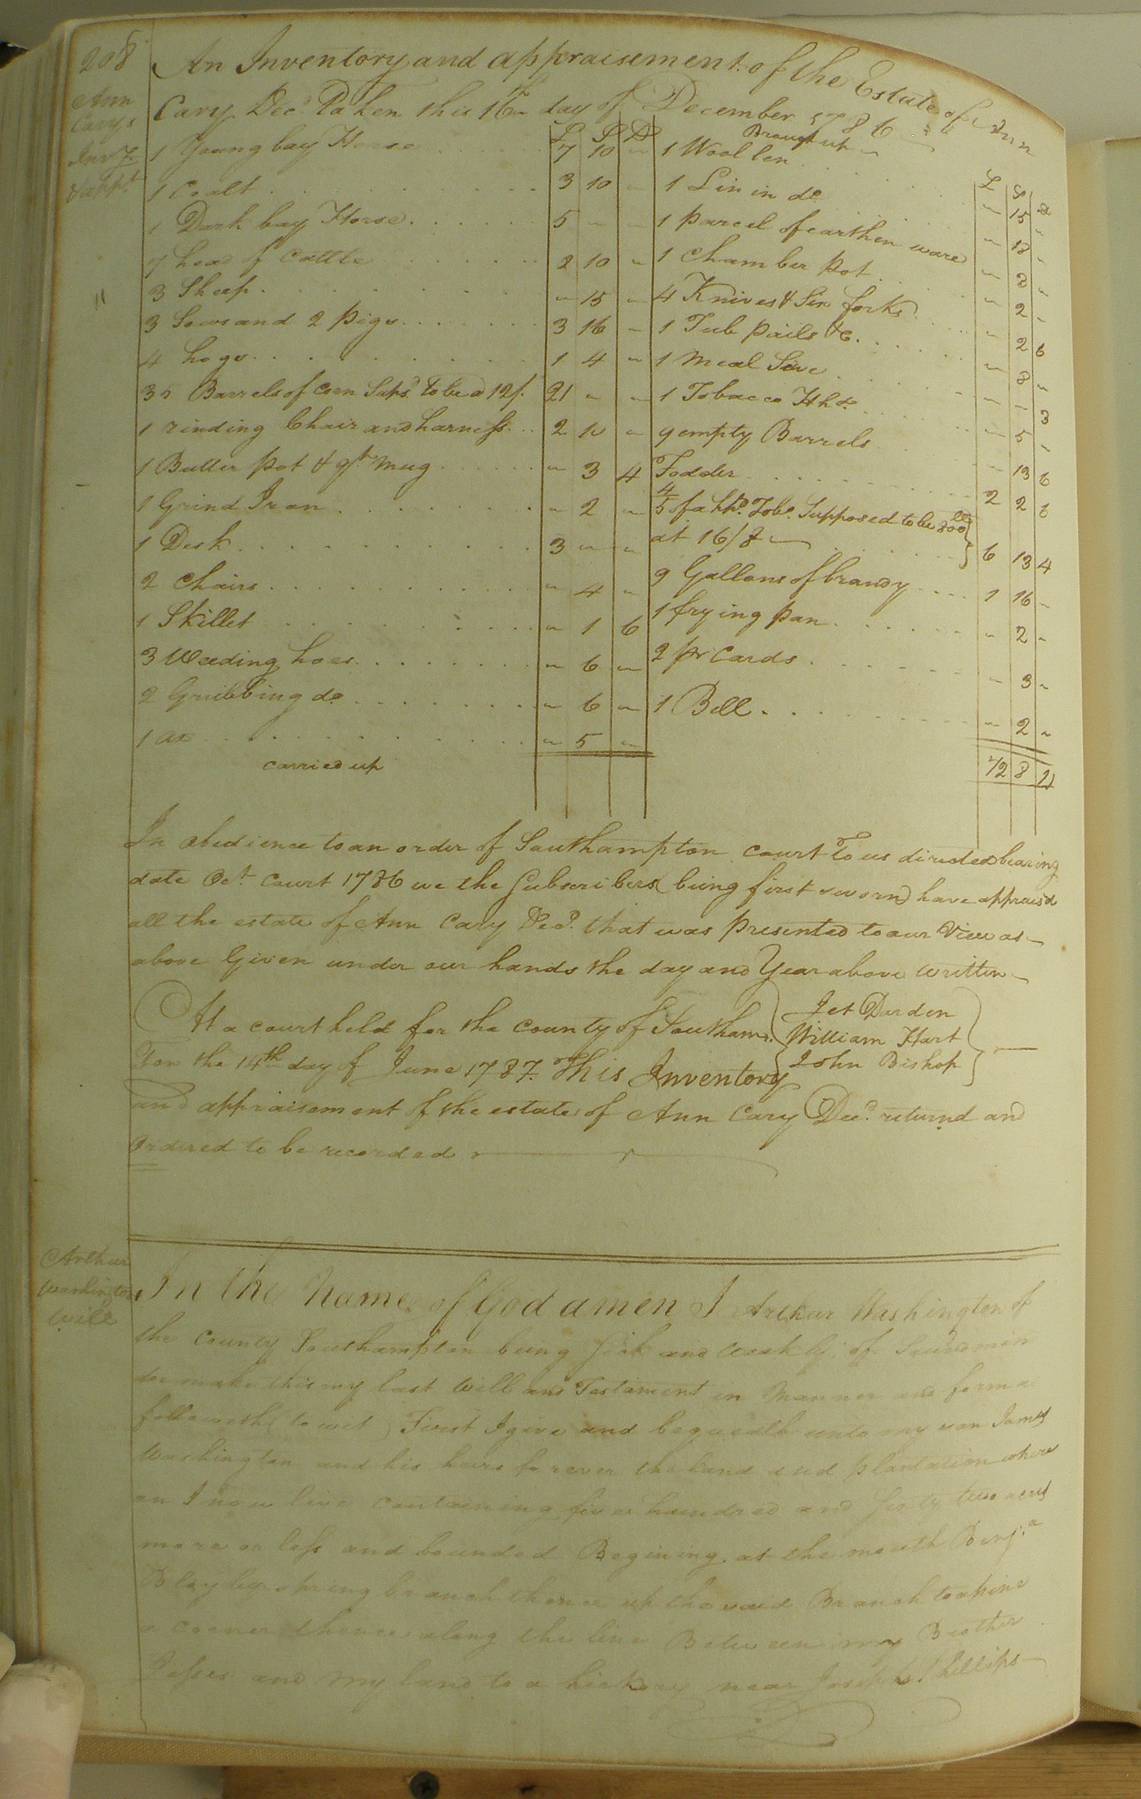 208
An Inventory and appraisement of the Estate of Ann
Cary Decd. Taken this 16th day of December 1786
Ann
Cary's
Invy.
& appt.
£ S D
1 Young bay Horse 7 10 "
1 Coalt 3 10 "
1 Dark bay Horse 5 " "
7 head of Cattle 2 10 "
3 Sheep " 15 "
3 Sows and 2 pigs 3 16 "
4 hogs 1 4 "
35 Barrels of Corn Supsd. to be a 12/. 21 " "
1 rinding Chair and harness 2 10 "
1 Butter pot & qt. mug " 3 4
1 Grind Iron " 2 "
1 Desk 3 " "
2 Chairs " 4 "
1 Skillet " 1 6
3 Weeding hoes " 6 "
2 Grubbing do " 6 "
1 ax " 5 "
carried up
Brought up
£ S D
1 Woollen " 15 "
1 Lin in do " 18 "
1 parcel of earthen ware " 8 "
1 Chamber pot " 2 "
4 Knives & Six forks " 2 6
1 Tub pails &c. " 8 "
1 Meal Sive " " 3
1 Tobacco Hhd. " 5 "
9 empty Barrels " 13 6
Fodder 2 2 6
4/5 of a hhd. Tobo. Supposed to be 800 lb
at 16/8 6 13 4
9 Gallons of brandy 1 16 "
1 frying pan " 2 "
2 pr Cards " 3 "
1 Bell " 2 "
72 8 11
In obedience to an order of Southampton Court To us directed bearing
date Oct. Court 1786 we the Subscribers (being first sworn) have apprais'd
all the estate of Ann Cary Decd. that was presented to our View as
above Given under our hands the day and Year above written
Jet Darden
William Hart
John Bishop
At a court held for the County of Southam.
ton the 14th day of June 1787. This Inventory
and appraisement of the estate of Ann Cary Decd. returnd and
ordered to be recorded
Arthur
Washingtons
Will
In the Name of God amen I Arthur Washington of
the County Southampton being Sick and weakly of Sound mind
doe make this my last will and Testament in Manner and form
followeth to wit, First I give and bequeath unto my son James
Washington and his heirs forever the land and plantation where
on I now live containing five hundred and forty two acres
more or less and bounded Begining at the mouth Benja.
spring branch thence up the said Branch to a pine
a corner thence along the line Between my Brother
Jesses and my land to a hickory near Joseph Phillips